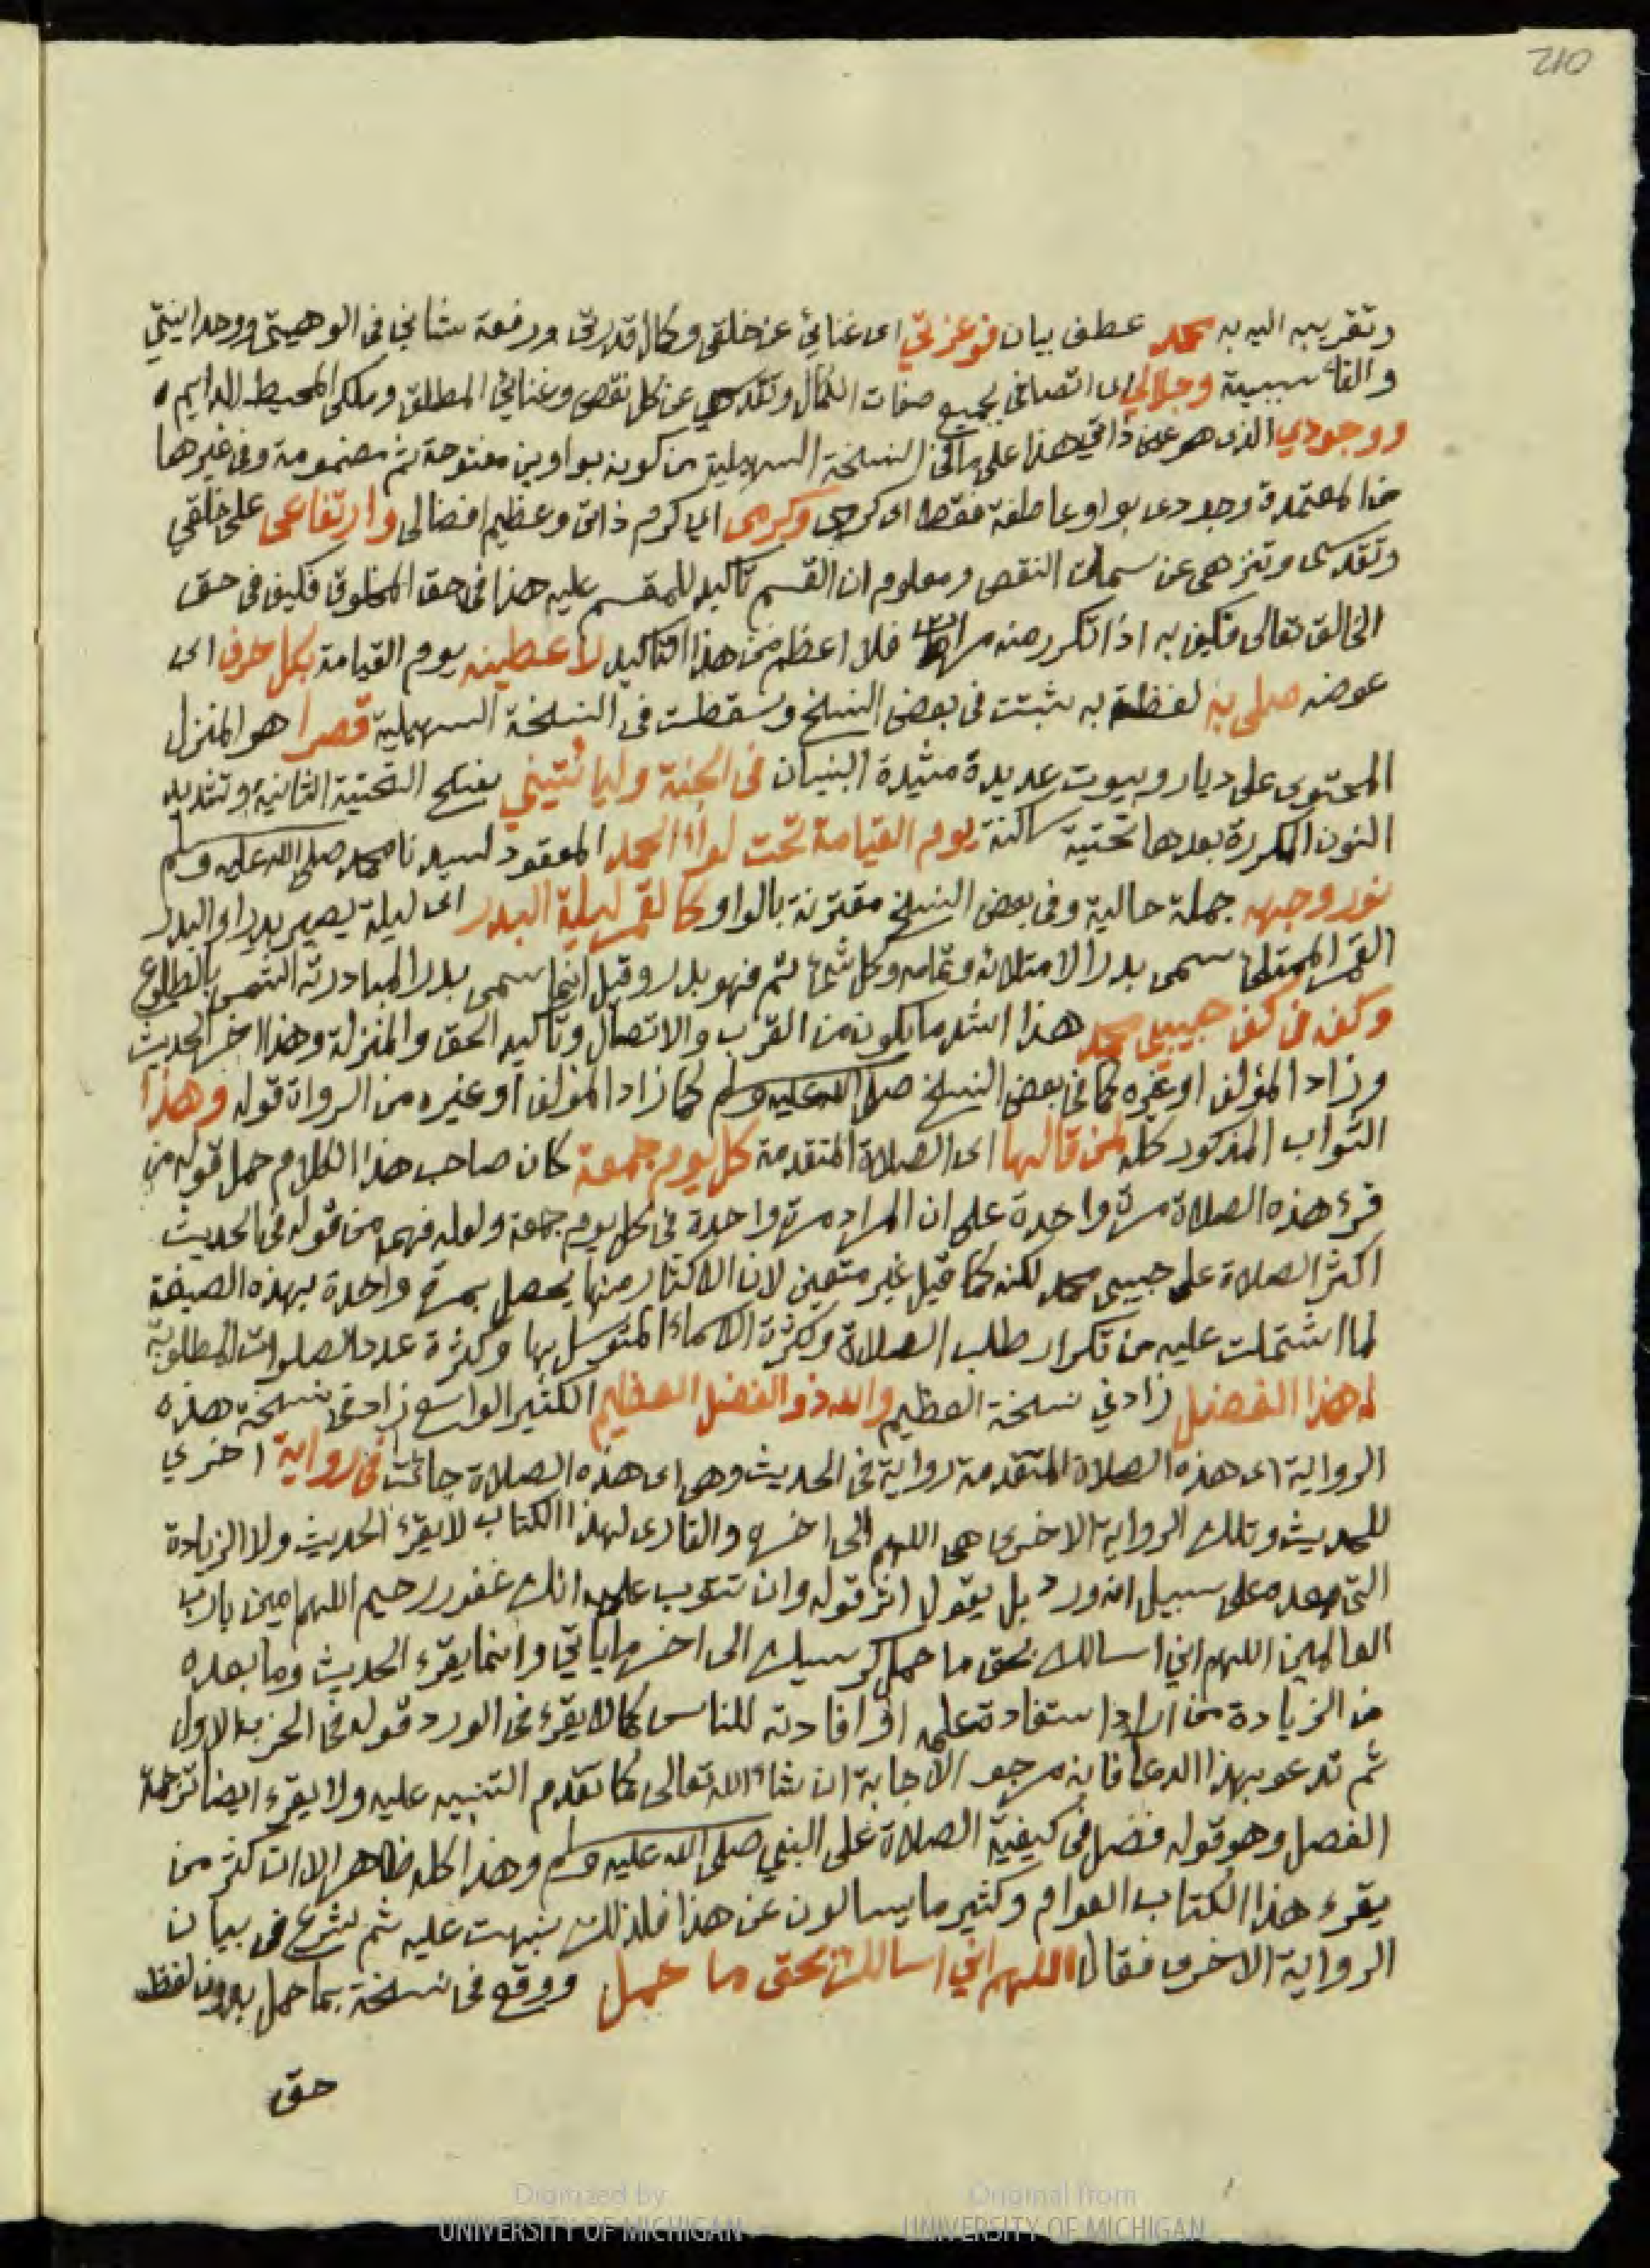 210
وتقريبه اليه به محمد عطف بيان فوعزتي اى غنائي عن خلقي وكمال قدرتى ورفعة شاني فى الوهيتى ووحدانيتي
والفأ سببية وجلالي اى اتصافى بجميع صفات الكمال وتقدسي عن كل نقص وغنائي المطلق وملكى المحيط الدايم
ووجودي الذى هو عين ذاتي هذا على ما فى النسخة السهلية من كونه بواوين مفتوحة ثم مضمومة وفى غيرها
من المعتمدة وجودى بواو عاطفة فقط اى كرمى وكرمى اى كرم ذاتى وعظيم افضالى وارتفاعى على خلقي
وتقدسى وتنزهى عن سمات النقص ومعلوم ان القسم تأكيد للمقسم عليه هذا فى حق المخلوق فكيف فى حق
الخالق تعالى فكيف به اذا تكرر منه مرات فلا اعظم من هذا التأكيد لأعطينه يوم القيامة بكل حرف اى
عوضه صلى به لفظة به ثبتت فى بعض النسخ وسقطت فى النسخة السهلية قصرا هو المنزل
المحتوى على ديار وبيوت عديدة مشيدة البنيان فى الجنة وليأتيني بفتح التحتية الثانية وتشديد
النون المكررة بعدها تحتية ساكنة يوم القيامة تحت لواء الحمد المعقود لسيدنا محمد صلى الله عليه وسلم
نور وجهه جملة حالية وفى بعض النسخ مقترنة بالواو كالقمر ليلة البدر اى ليلة يصير بدرا والبدر
القمر الممتلئ سمى بدرا لامتلائه وتمامه وكل شئ تم فهو بدر وقيل انما سمى بدرا لمبادرته الشمس بالطلوع
وكفه فى كف حبيبى محمد هذا اشد ما يكون من القرب والاتصال وتأكيد الحق والمنزلة وهذا اخر الحديث
وزاد المؤلف او غيره كما فى بعض النسخ صلى الله عليه وسلم كما زاد المؤلف او غيره من الرواة قوله وهذا
الثواب المذكور كله لمن قالها اى الصلاة المتقدمة كل يوم جمعة كان صاحب هذا الكلام حمل قوله من
قرء هذه الصلاة مرة واحدة على ان المراد مرة واحدة فى كل يوم جمعة ولعله فهمه من قوله فى الحديث
اكثر الصلاة على حبيبى محمد لكنه كما قيل غير متعين لان الاكثار منها يحصل بمرة واحدة بهذه الصيغة
لما اشتملت عليه من تكرار طلب الصلاة وكثرة الاسماء المتوسل بها وكثرة عدد الصلوات المطلوبة
له هذا الفضل زاد في نسخة العظيم والله ذو الفضل العظيم الكثير الواسع زاد فى نسخة هذه
الرواية اى هذه الصلاة المتقدمة رواية فى الحديث وهى اى هذه الصلاة جائت فى رواية اخرى
للحديث وتلك الرواية الاخرى هى اللهم الى اخره والقارى لهذا الكتاب لا يقرء الحديث ولا الزيادة
التى بعده على سبيل انه ورد بل يقول اثر قوله وان تتوب عليه انك غفور رحيم اللهم امين يارب
العالمين اللهم اني اسالك بحق ما حمل كرسيك الى اخر ما ياتي وانما يقرء الحديث وما بعده
من الزيادة من اراد استفادة علمه او افادته للناس كما لا يقرء فى الورد قوله فى الحزب الاول
ثم تدعو بهذا الدعا فانه مرجو الاجابة ان شاء الله تعالى كما تقدم التنبيه عليه ولا يقرء ايضا ترجمة
الفصل وهو قوله فصل فى كيفية الصلاة على النبي صلى الله عليه وسلم وهذا كله ظاهر الا ان اكثر من
يقرء هذا الكتاب العوام وكثير ما يسالون عن هذا فلذلك نبهت عليه ثم شرع فى بيان
الرواية الاخرى فقال اللهم اني اسالك بحق ما حمل ووقع فى نسخة بما حمل بدون لفظ
حق
Digitized by
UNIVERSITY OF MICHIGAN
Original from
UNIVERSITY OF MICHIGAN